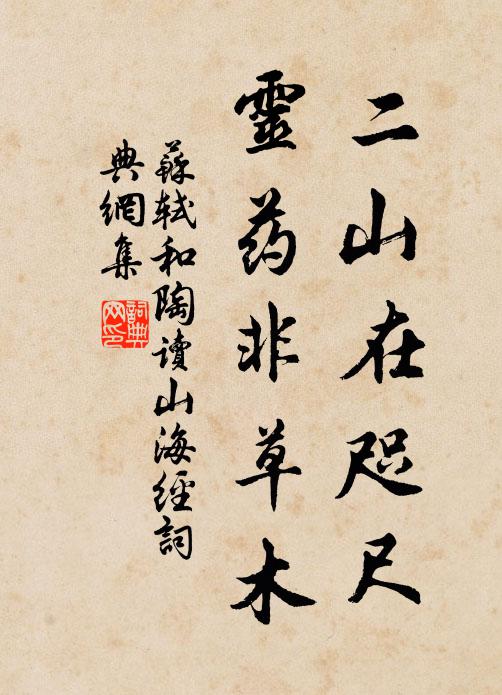 二山在咫尺
靈药非草木
蘇軾和陶讀山海經詞
典網集
詞典
网印